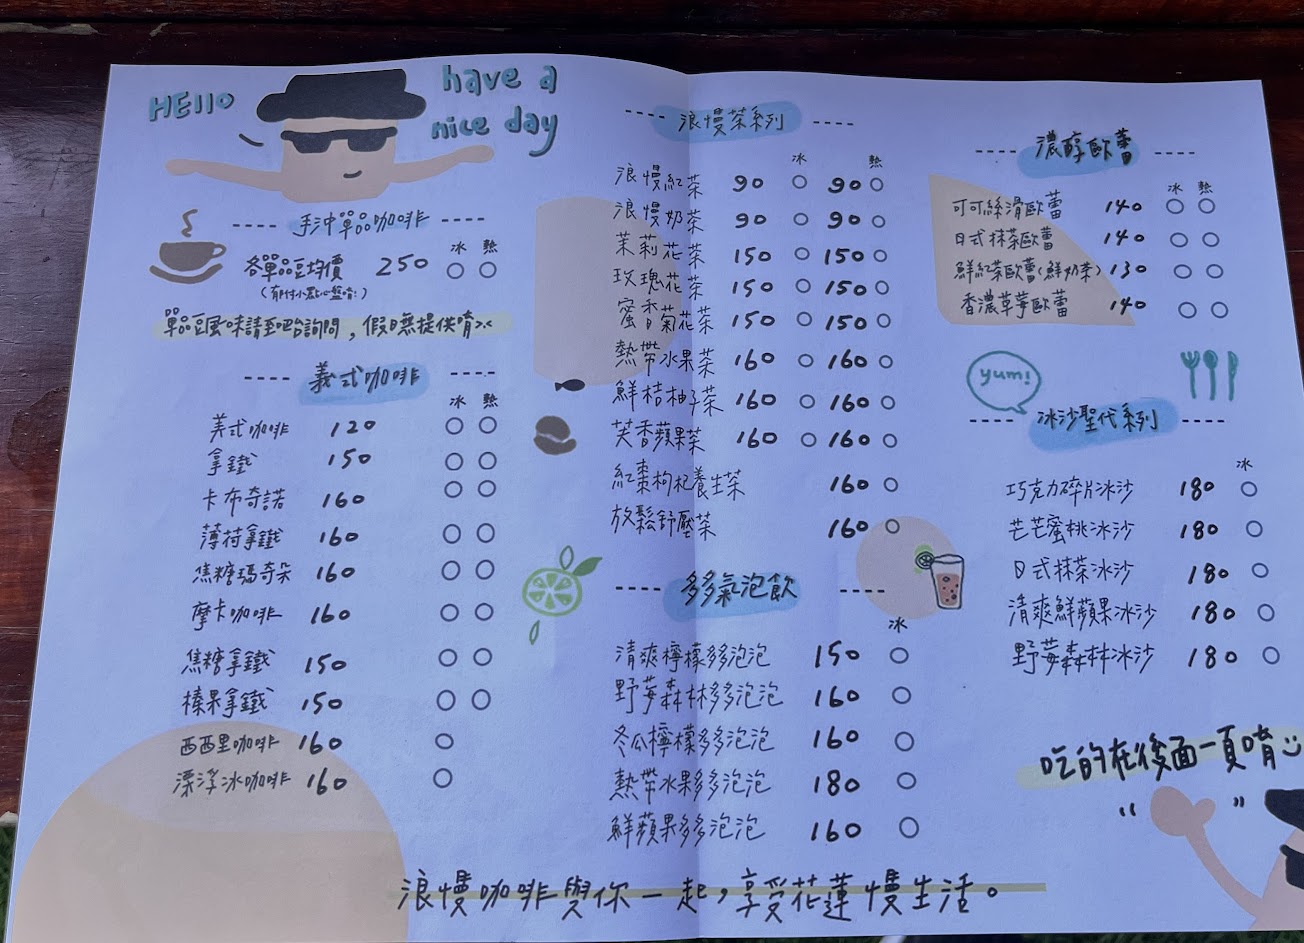 HEllo
have a
nice day
手沖單品咖啡
冰 熱
各單品豆均價 250 ○ ○
(有附小點心盤唷!)
單品豆風味請至吧台詢問，假日無提供唷><
義式咖啡
冰 熱
美式咖啡 120 ○ ○
拿鐵 150 ○ ○
卡布奇諾 160 ○ ○
薄荷拿鐵 160 ○ ○
焦糖瑪奇朵 160 ○ ○
摩卡咖啡 160 ○ ○
焦糖拿鐵 150 ○ ○
榛果拿鐵 150 ○ ○
西西里咖啡 160 ○
漂浮冰咖啡 160 ○
浪慢茶系列
冰 熱
浪慢紅茶 90 ○ 90 ○
浪慢奶茶 90 ○ 90 ○
茉莉花茶 150 ○ 150 ○
玫瑰花茶 150 ○ 150 ○
蜜香菊花茶 150 ○ 150 ○
熱帶水果茶 160 ○ 160 ○
鮮桔柚子茶 160 ○ 160 ○
芙香蘋果茶 160 ○ 160 ○
紅棗枸杞養生茶 160 ○
放鬆舒壓茶 160 ○
多多氣泡飲
冰
清爽檸檬多多泡泡 150 ○
野莓森林多多泡泡 160 ○
冬瓜檸檬多多泡泡 160 ○
熱帶水果多多泡泡 180 ○
鮮蘋果多多泡泡 160 ○
濃醇歐蕾
冰 熱
可可絲滑歐蕾 140 ○ ○
日式抹茶歐蕾 140 ○ ○
鮮紅茶歐蕾(鮮奶茶) 130 ○ ○
香濃草莓歐蕾 140 ○ ○
yum!
冰沙聖代系列
冰
巧克力碎片冰沙 180 ○
芒芒蜜桃冰沙 180 ○
日式抹茶冰沙 180 ○
清爽鮮蘋果冰沙 180 ○
野莓森林冰沙 180 ○
吃的在後面一頁唷
浪慢咖啡與你一起，享受花蓮慢生活。